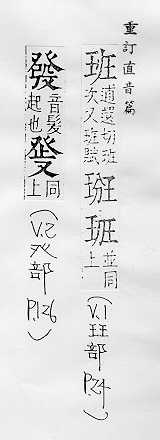 重訂直音篇
班
逋還切班
次又班賦
並同
上
(V.1 玨部 P.24)
發
音髮
起也
同
上
(V.2 癶部 P.126)